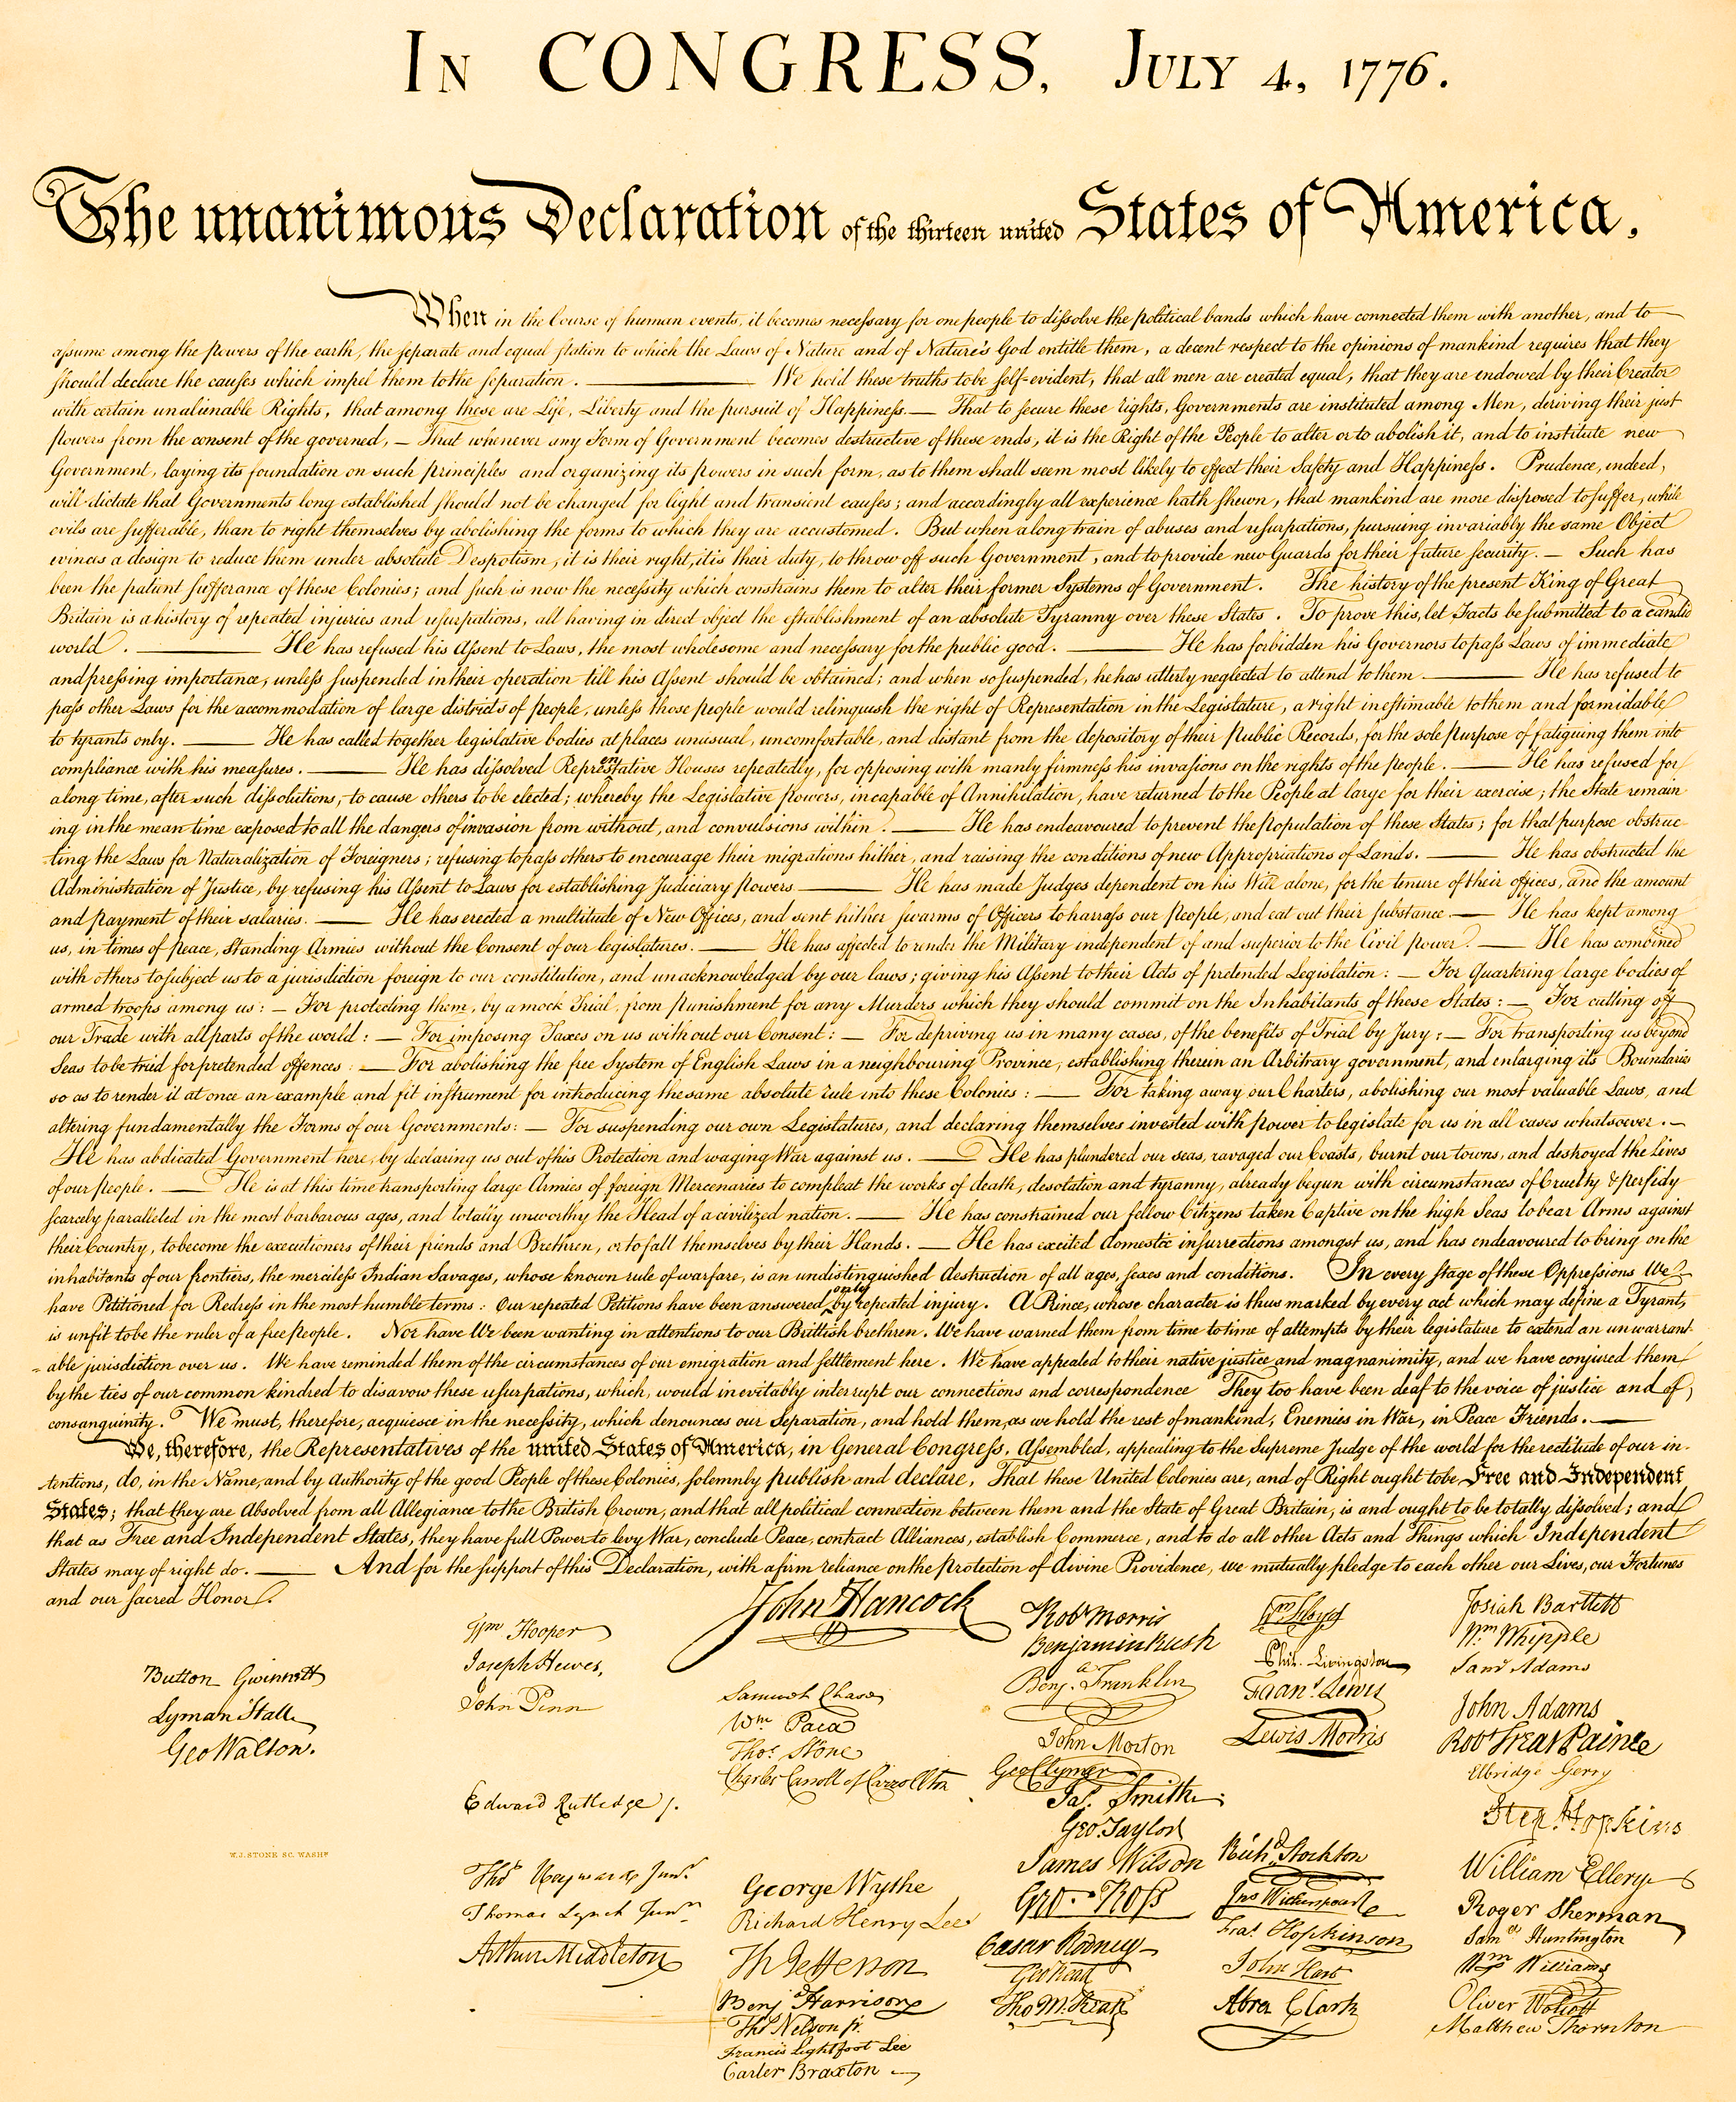 IN CONGRESS, JULY 4, 1776.
The unanimous Declaration of the thirteen united States of America,
When in the Course of human events, it becomes necessary for one people to dissolve the political bands which have connected them with another, and to
assume among the powers of the earth, the separate and equal station to which the Laws of Nature and of Nature's God entitle them, a decent respect to the opinions of mankind requires that they
should declare the causes which impel them to the separation. — We hold these truths to be self-evident, that all men are created equal, that they are endowed by their Creator
with certain unalienable Rights, that among these are Life, Liberty and the pursuit of Happiness. — That to secure these rights, Governments are instituted among Men, deriving their just
powers from the consent of the governed, — That whenever any Form of Government becomes destructive of these ends, it is the Right of the People to alter or to abolish it, and to institute new
Government, laying its foundation on such principles and organizing its powers in such form, as to them shall seem most likely to effect their Safety and Happiness. Prudence, indeed,
will dictate that Governments long established should not be changed for light and transient causes; and accordingly all experience hath shewn, that mankind are more disposed to suffer, while
evils are sufferable, than to right themselves by abolishing the forms to which they are accustomed. But when a long train of abuses and usurpations, pursuing invariably the same Object
evinces a design to reduce them under absolute Despotism, it is their right, it is their duty, to throw off such Government, and to provide new Guards for their future security. — Such has
been the patient sufferance of these Colonies; and such is now the necessity which constrains them to alter their former Systems of Government. The history of the present King of Great
Britain is a history of repeated injuries and usurpations, all having in direct object the establishment of an absolute Tyranny over these States. To prove this, let Facts be submitted to a candid
world. — He has refused his Assent to Laws, the most wholesome and necessary for the public good. — He has forbidden his Governors to pass Laws of immediate
and pressing importance, unless suspended in their operation till his Assent should be obtained; and when so suspended, he has utterly neglected to attend to them. — He has refused to
pass other Laws for the accommodation of large districts of people, unless those people would relinquish the right of Representation in the Legislature, a right inestimable to them and formidable
to tyrants only. — He has called together legislative bodies at places unusual, uncomfortable, and distant from the depository of their Public Records, for the sole purpose of fatiguing them into
compliance with his measures. — He has dissolved Representative Houses repeatedly, for opposing with manly firmness his invasions on the rights of the people. — He has refused for
a long time, after such dissolutions, to cause others to be elected; whereby the Legislative powers, incapable of Annihilation, have returned to the People at large for their exercise; the State remain
ing in the mean time exposed to all the dangers of invasion from without, and convulsions within. — He has endeavoured to prevent the population of these States; for that purpose obstruc-
ting the Laws for Naturalization of Foreigners; refusing to pass others to encourage their migrations hither, and raising the conditions of new Appropriations of Lands. — He has obstructed the
Administration of Justice, by refusing his Assent to Laws for establishing Judiciary powers — He has made Judges dependent on his Will alone, for the tenure of their offices, and the amount
and payment of their salaries. — He has erected a multitude of New Offices, and sent hither swarms of Officers to harrass our people, and eat out their substance. — He has kept among
us, in times of peace, Standing Armies without the Consent of our legislatures. — He has affected to render the Military independent of and superior to the Civil power. — He has combined
with others to subject us to a jurisdiction foreign to our constitution, and unacknowledged by our laws; giving his Assent to their Acts of pretended Legislation: — For Quartering large bodies of
armed troops among us: — For protecting them, by a mock Trial, from punishment for any Murders which they should commit on the Inhabitants of these States: — For cutting off
our Trade with all parts of the world: — For imposing Taxes on us without our Consent: — For depriving us in many cases, of the benefits of Trial by Jury: — For transporting us beyond
Seas to be tried for pretended offences: — For abolishing the free System of English Laws in a neighbouring Province, establishing therein an Arbitrary government, and enlarging its Boundaries
so as to render it at once an example and fit instrument for introducing the same absolute rule into these Colonies: — For taking away our Charters, abolishing our most valuable Laws, and
altering fundamentally the Forms of our Governments: — For suspending our own Legislatures, and declaring themselves invested with power to legislate for us in all cases whatsoever. —
He has abdicated Government here, by declaring us out of his Protection and waging War against us. — He has plundered our seas, ravaged our Coasts, burnt our towns, and destroyed the lives
of our people. — He is at this time transporting large Armies of foreign Mercenaries to compleat the works of death, desolation and tyranny, already begun with circumstances of Cruelty & perfidy
scarcely paralleled in the most barbarous ages, and totally unworthy the Head of a civilized nation. — He has constrained our fellow Citizens taken Captive on the high Seas to bear Arms against
their Country, to become the executioners of their friends and Brethren, or to fall themselves by their Hands. — He has excited domestic insurrections amongst us, and has endeavoured to bring on the
inhabitants of our frontiers, the merciless Indian Savages, whose known rule of warfare, is an undistinguished destruction of all ages, sexes and conditions. In every stage of these Oppressions We
have Petitioned for Redress in the most humble terms: Our repeated Petitions have been answered only by repeated injury. A Prince, whose character is thus marked by every act which may define a Tyrant,
is unfit to be the ruler of a free people. Nor have We been wanting in attentions to our Brittish brethren. We have warned them from time to time of attempts by their legislature to extend an unwarrant-
able jurisdiction over us. We have reminded them of the circumstances of our emigration and settlement here. We have appealed to their native justice and magnanimity, and we have conjured them
by the ties of our common kindred to disavow these usurpations, which, would inevitably interrupt our connections and correspondence They too have been deaf to the voice of justice and of
consanguinity. We must, therefore, acquiesce in the necessity, which denounces our Separation, and hold them, as we hold the rest of mankind, Enemies in War, in Peace Friends. —
We, therefore, the Representatives of the united States of America, in General Congress, Assembled, appealing to the Supreme Judge of the world for the rectitude of our in-
tentions, do, in the Name, and by Authority of the good People of these Colonies, solemnly publish and declare, That these United Colonies are, and of Right ought to be Free and Independent
States; that they are Absolved from all Allegiance to the British Crown, and that all political connection between them and the State of Great Britain, is and ought to be totally dissolved; and
that as Free and Independent States, they have full Power to levy War, conclude Peace, contract Alliances, establish Commerce, and to do all other Acts and Things which Independent
States may of right do. — And for the support of this Declaration, with a firm reliance on the protection of divine Providence, we mutually pledge to each other our Lives, our Fortunes
and our sacred Honor.
Button Gwinnett
Lyman Hall
Geo Walton.
W.J. STONE SC. WASHN
Wm Hooper
Joseph Hewes,
John Penn
Edward Rutledge /.
Thos Heyward Junr.
Thomas Lynch Junr.
Arthur Middleton
John Hancock
Samuel Chase
Wm. Paca
Thos. Stone
Charles Carroll of Carrollton
George Wythe
Richard Henry Lee
Th Jefferson
Benj Harrison
Thos Nelson jr.
Francis Lightfoot Lee
Carter Braxton
Robt Morris
Benjamin Rush
Benj. Franklin
John Morton
Geo Clymer
Jas. Smith
Geo. Taylor
James Wilson
Geo. Ross
Caesar Rodney
Geo Read
Tho M:Kean
Wm Floyd
Phil. Livingston
Frans. Lewis
Lewis Morris
Richd. Stockton
Jno Witherspoon
Fras. Hopkinson
John Hart
Abra Clark
Josiah Bartlett
Wm. Whipple
Saml Adams
John Adams
Robt Treat Paine
Elbridge Gerry
Step. Hopkins
William Ellery
Roger Sherman
Saml Huntington
Wm Williams
Oliver Wolcott
Matthew Thornton